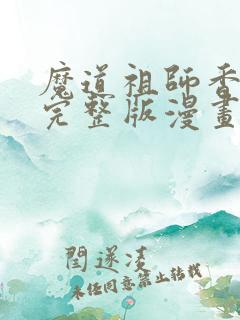 魔道祖師香
完整版漫畫
閆遂淩
未任同意禁止转载